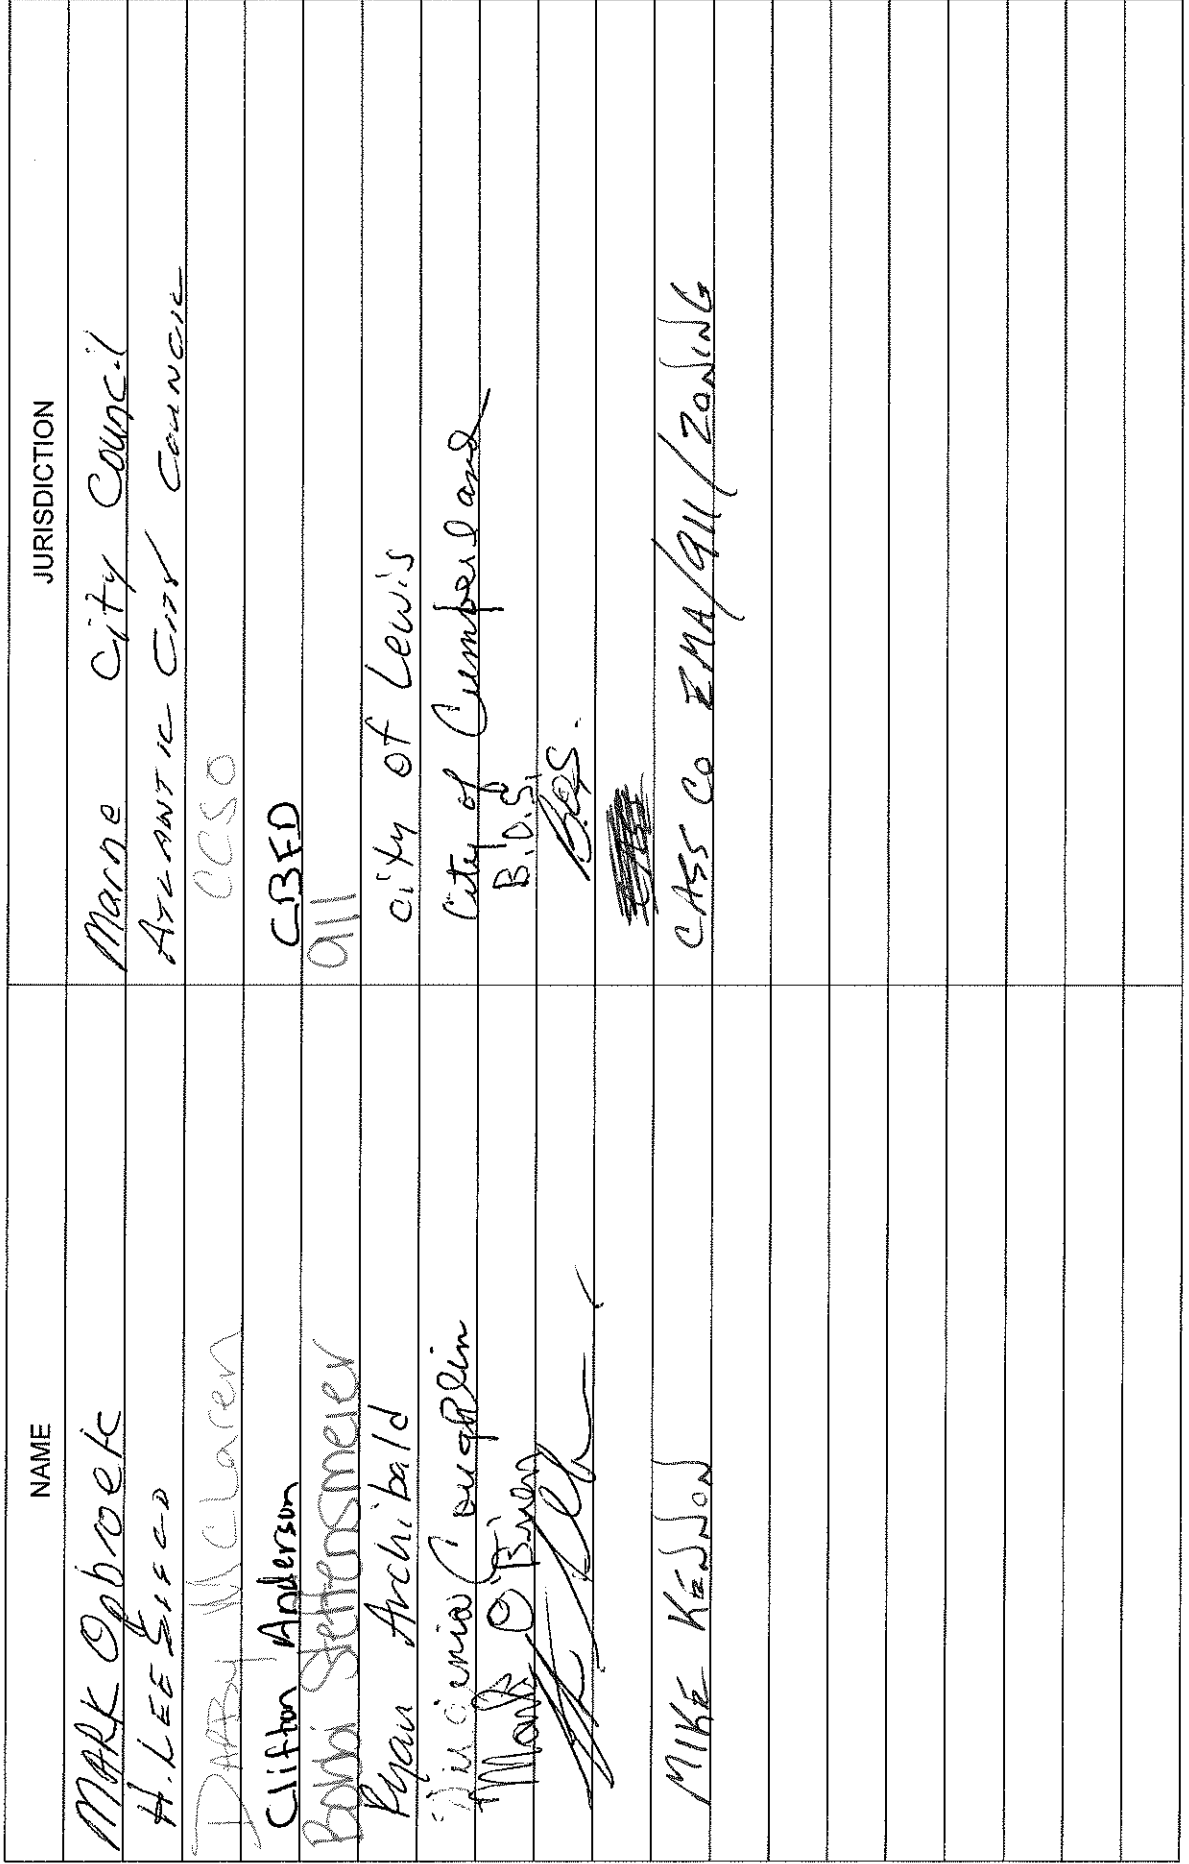 NAME JURISDICTION
MARK Opbroek Marne City Council
H. LEE ATLANTIC CITY COUNCIL
DARBy McLaren CCSO
Clifton Anderson CBFD
Bobbi Steffensmeier 911
Ryan Archibald City of Lewis
Virginia Coughlin City of Cumberland
Mark O'Brien B.O.S.
B.O.S.
MIKE KENNON CASS CO EMA/911/ZONING